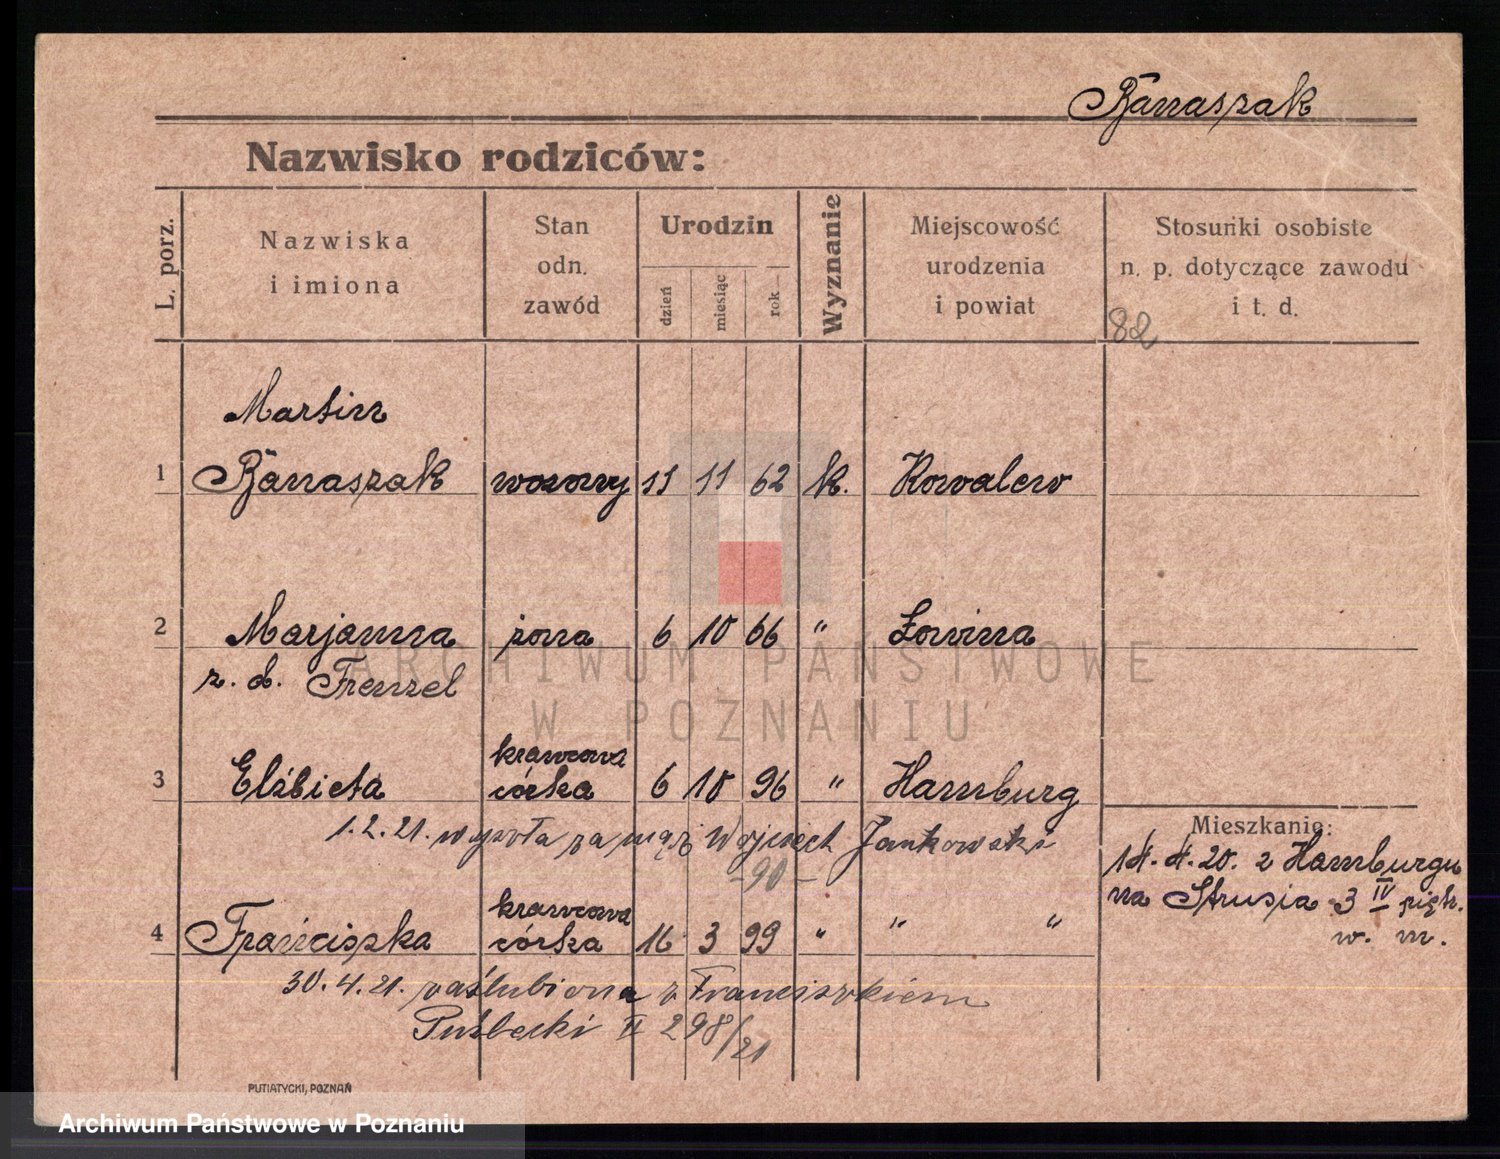 Banaszak
Nazwisko rodziców:
L. porz.
Nazwiska
i imiona
Stan
odn.
zawód
Urodzin
dzień
miesiąc
rok
Wyznanie
Miejscowość
urodzenia
i powiat
Stosunki osobiste
n. p. dotyczące zawodu
i t. d.
82
Martin
1 Banaszak wozowy 11 11 62 k. Kowalew
2 Marjanna żona 6 10 66 " Łowina
z. d. Frenzel
krawcowa
3 Elżbieta córka 6 10 96 " Hamburg
1.2.21. wyszła za mąż Wojciech Jankowski
-90-
krawcowa
4 Franciszka córka 16 3 99 " " "
30.4.21. zaślubiona z Franciszkiem
II 298/21
Mieszkanie:
14.4.20. z Hamburga
na Strusia 3 IV piętr.
w. m.
PUTIATYCKI, POZNAŃ
ARCHIWUM PAŃSTWOWE
W POZNANIU
Archiwum Państwowe w Poznaniu